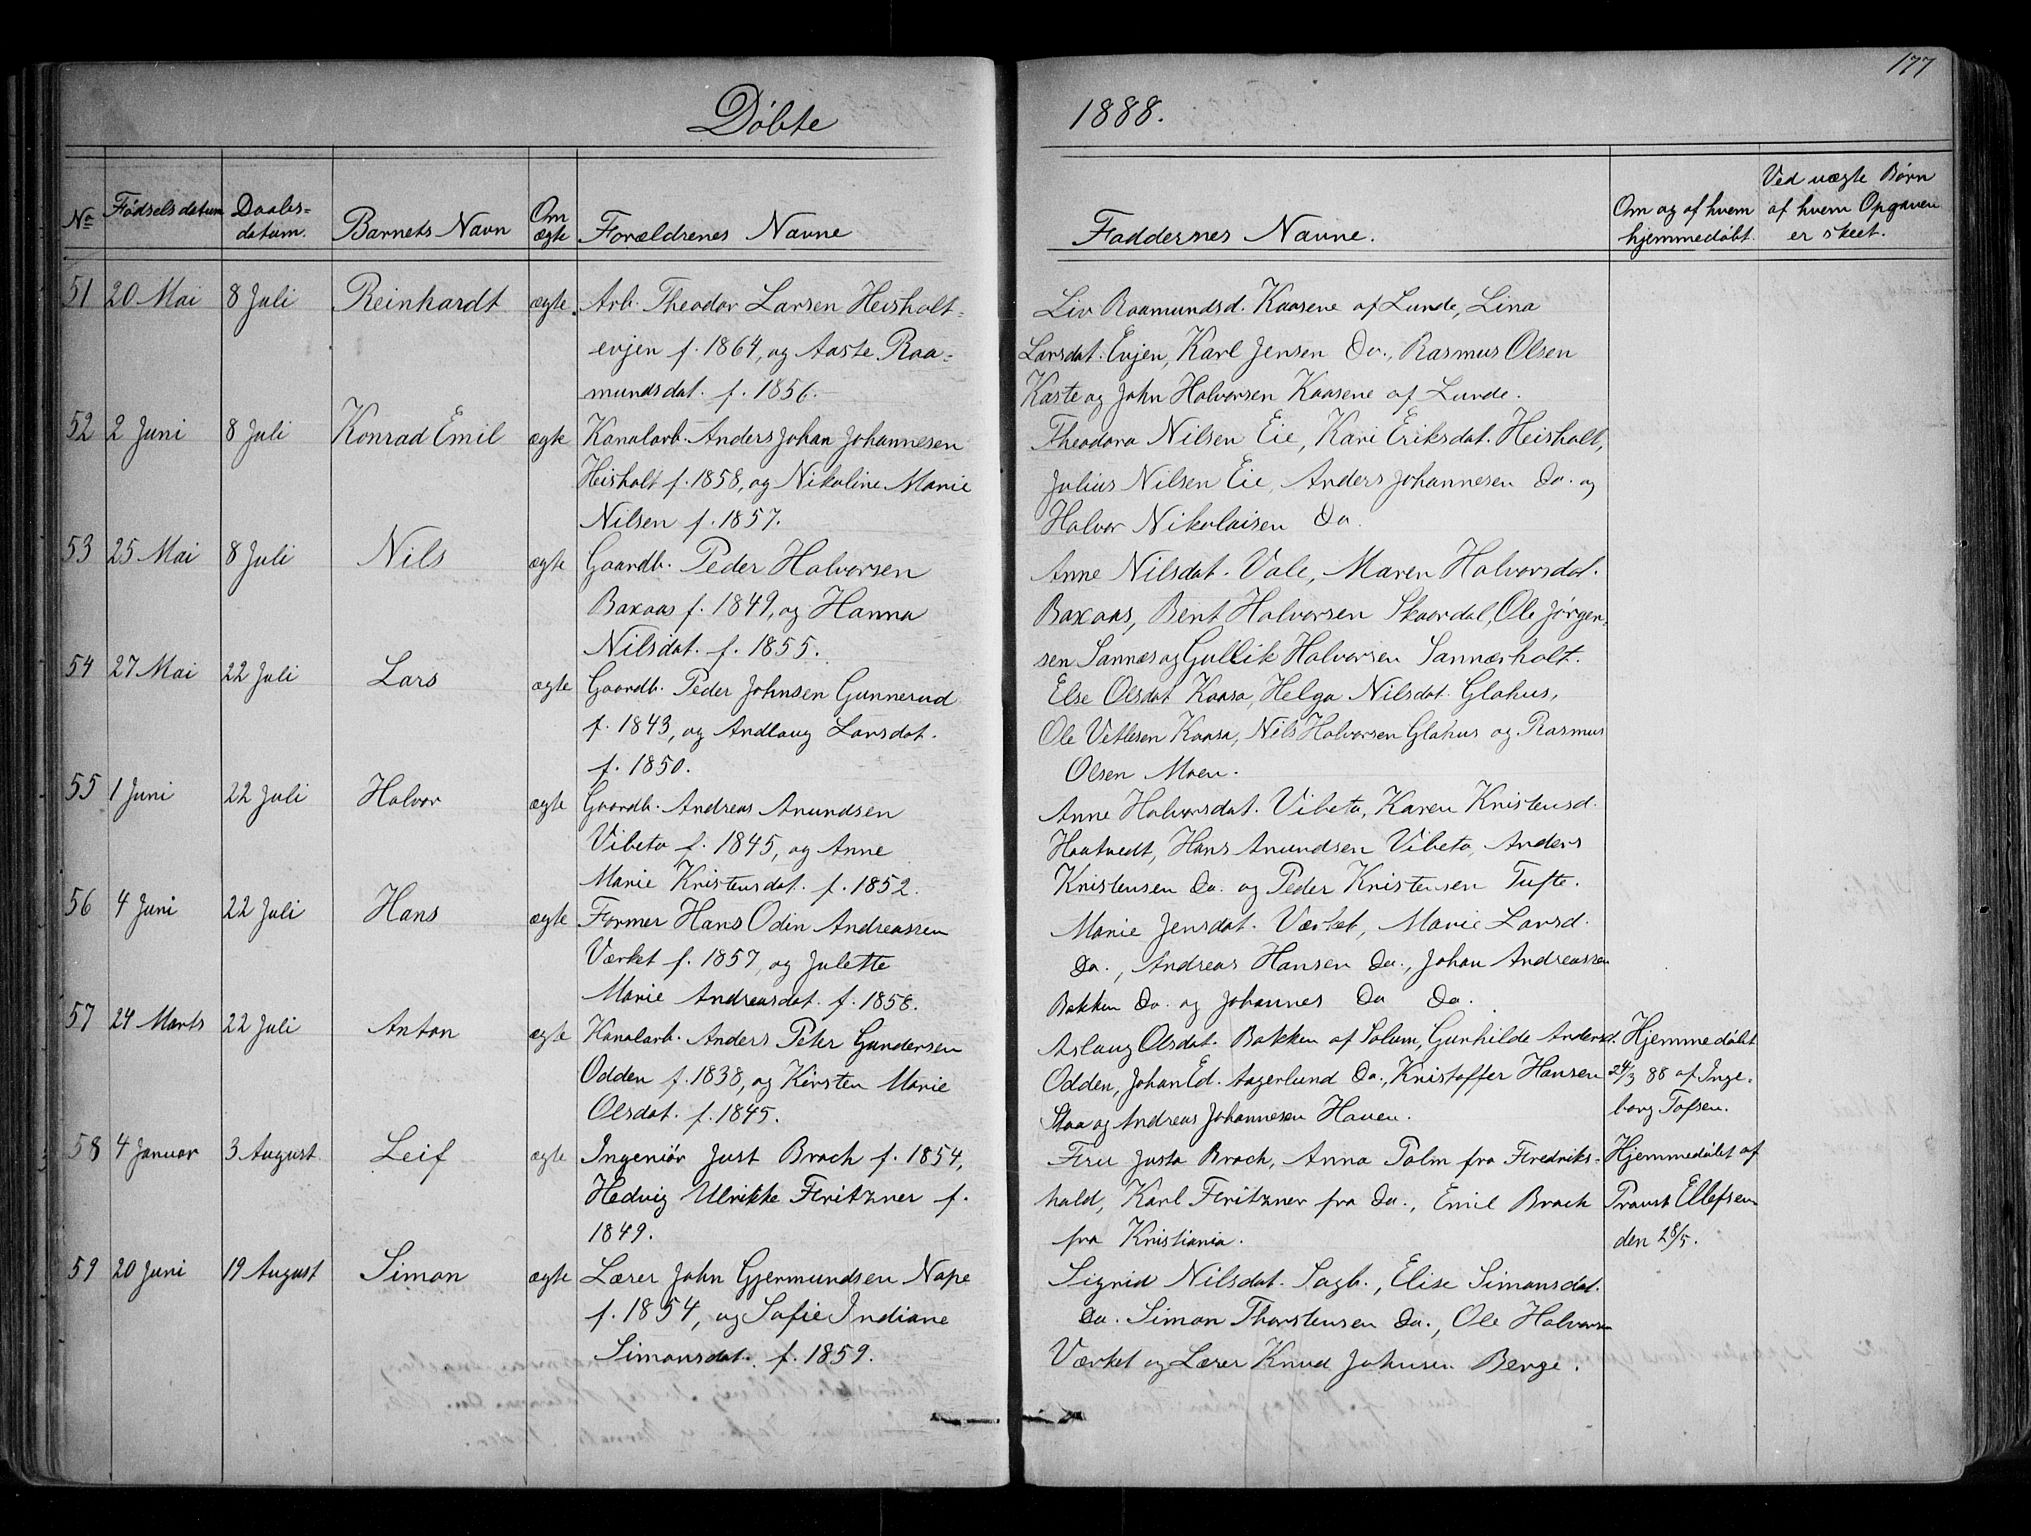 177
Døbte 1888.
No Fødselsdatum Daabs=datum. Barnets Navn Om ægte Forældrenes Navne Faddernes Navne. Om og af hvem hjemmedøbt. Ved uægte Børn af hvem Opgaven er skeet.
51 20 Mai 8 Juli Reinhardt ægte. Arb. Theodor Larsen Heisholt=
evjen f. 1864, og Aaste Roa=
mundsdat. f. 1856.
Liv Roamundsd. Kaasene af Lunde, Lina
Larsdat. Evjen, Karl Jensen Do., Rasmus Olsen
Kaste og John Halvorsen Kaasene af Lunde.
52 2 Juni 8 Juli Konrad Emil ægte Kanalarb. Anders Johan Johannesen
Heisholt f. 1858, og Nikoline Marie
Nilsen f. 1857.
Theodora Nilsen Eie, Kari Eriksdat. Heisholt,
Julius Nilsen Eie, Anders Johannesen Do. og
Halvor Nikolaisen Do.
53 25 Mai 8 Juli Nils ægte Gaardb. Peder Halvorsen
Baxaas f. 1849, og Hanna
Nilsdat. f. 1855.
Anne Nilsdat. Vale, Maren Halvorsdat.
Baxaas, Bent Halvorsen Skaardal, Ole Jørgen=
sen Sannes og Gullik Halvorsen Sannerholt.
54 27 Mai 22 Juli Lars ægte Gaardb. Peder Johnsen Gunnerud
f. 1843, og Andlaug Larsdat.
f. 1850.
Else Olsdat Kaasa, Helga Nilsdat. Glahus,
Ole Vetlesen Kaasa, Nils Halvorsen Glahus og Rasmus
Olsen Moen.
55 1 Juni 22 Juli Halvor ægte Gaardb. Andreas Anundsen
Vibeto f. 1845, og Anne
Marie Kristensdat. f. 1852.
Anne Halvorsdat. Vibeto, Karen Kristensd.
Haatvedt, Hans Anundsen Vibeto, Anders
Kristensen Do. og Peder Kristensen Tufte.
56 4 Juni 22 Juli Hans ægte Former Hans Odin Andreassen
Værket f. 1857, og Julette
Marie Andreasdat. f. 1858.
Marie Jensdat. Værket, Marie Larsd.
Do., Andreas Hansen Do., Johan Andreassen
Bakken Do. og Johannes Do Do.
57 24 Marts 22 Juli Anton ægte Kanalarb. Anders Peter Gundersen
Odden f. 1838, og Kirsten Marie
Olsdat. f. 1845.
Aslaug Olsdat. Bakken af Solum, Gunhilde Andersd.
Odden, Johan Ed. Aagerlund Do., Kristoffer Hansen
Staa og Andreas Johannesen Hauen.
Hjemmedøbt
24/3 88 af Inge=
borg Tofsen.
58 4 Januar 3 August Leif ægte Ingeniør Just Broch f. 1854,
Hedvig Ulrikke Fritzner f.
1849.
Fru Justa Broch, Anna Polm fra Fredriks=
hald, Karl Fritzner fra Do., Emil Broch
fra Kristiania.
Hjemmedøbt af
Provst Ellefsen
den 28/5.
59 20 Juni 19 August Simon ægte Lærer John Gjermundsen Nape
f. 1854, og Sofie Indiane
Simonsdat. f. 1859.
Sigrid Nilsdat. Sagb., Elise Simonsdat.
Do. Simon Thorstensen Do., Ole Halvorsen
Værket og Lærer Knud Johnsen Berge.